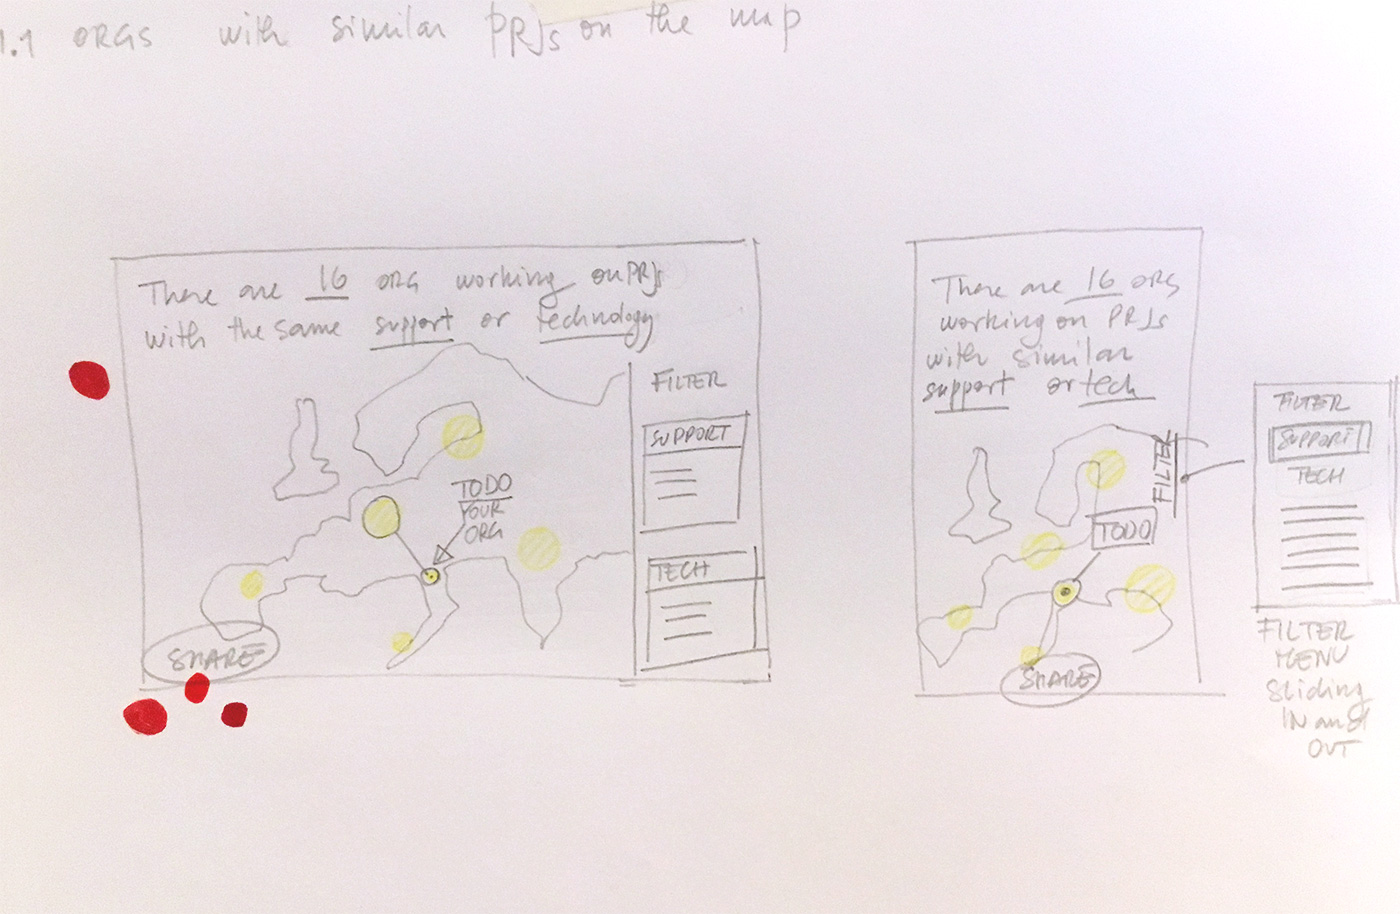 1.1 ORGS with similar PRJs on the map
There are 16 ORG working on PRJs
with the same support or technology
FILTER
SUPPORT
TODO
YOUR
ORG
TECH
SHARE
There are 16 ORG
working on PRJs
with similar
support or tech
FILTER
TODO
SHARE
FILTER
SUPPORT
TECH
FILTER
MENU
Sliding
IN and
OUT